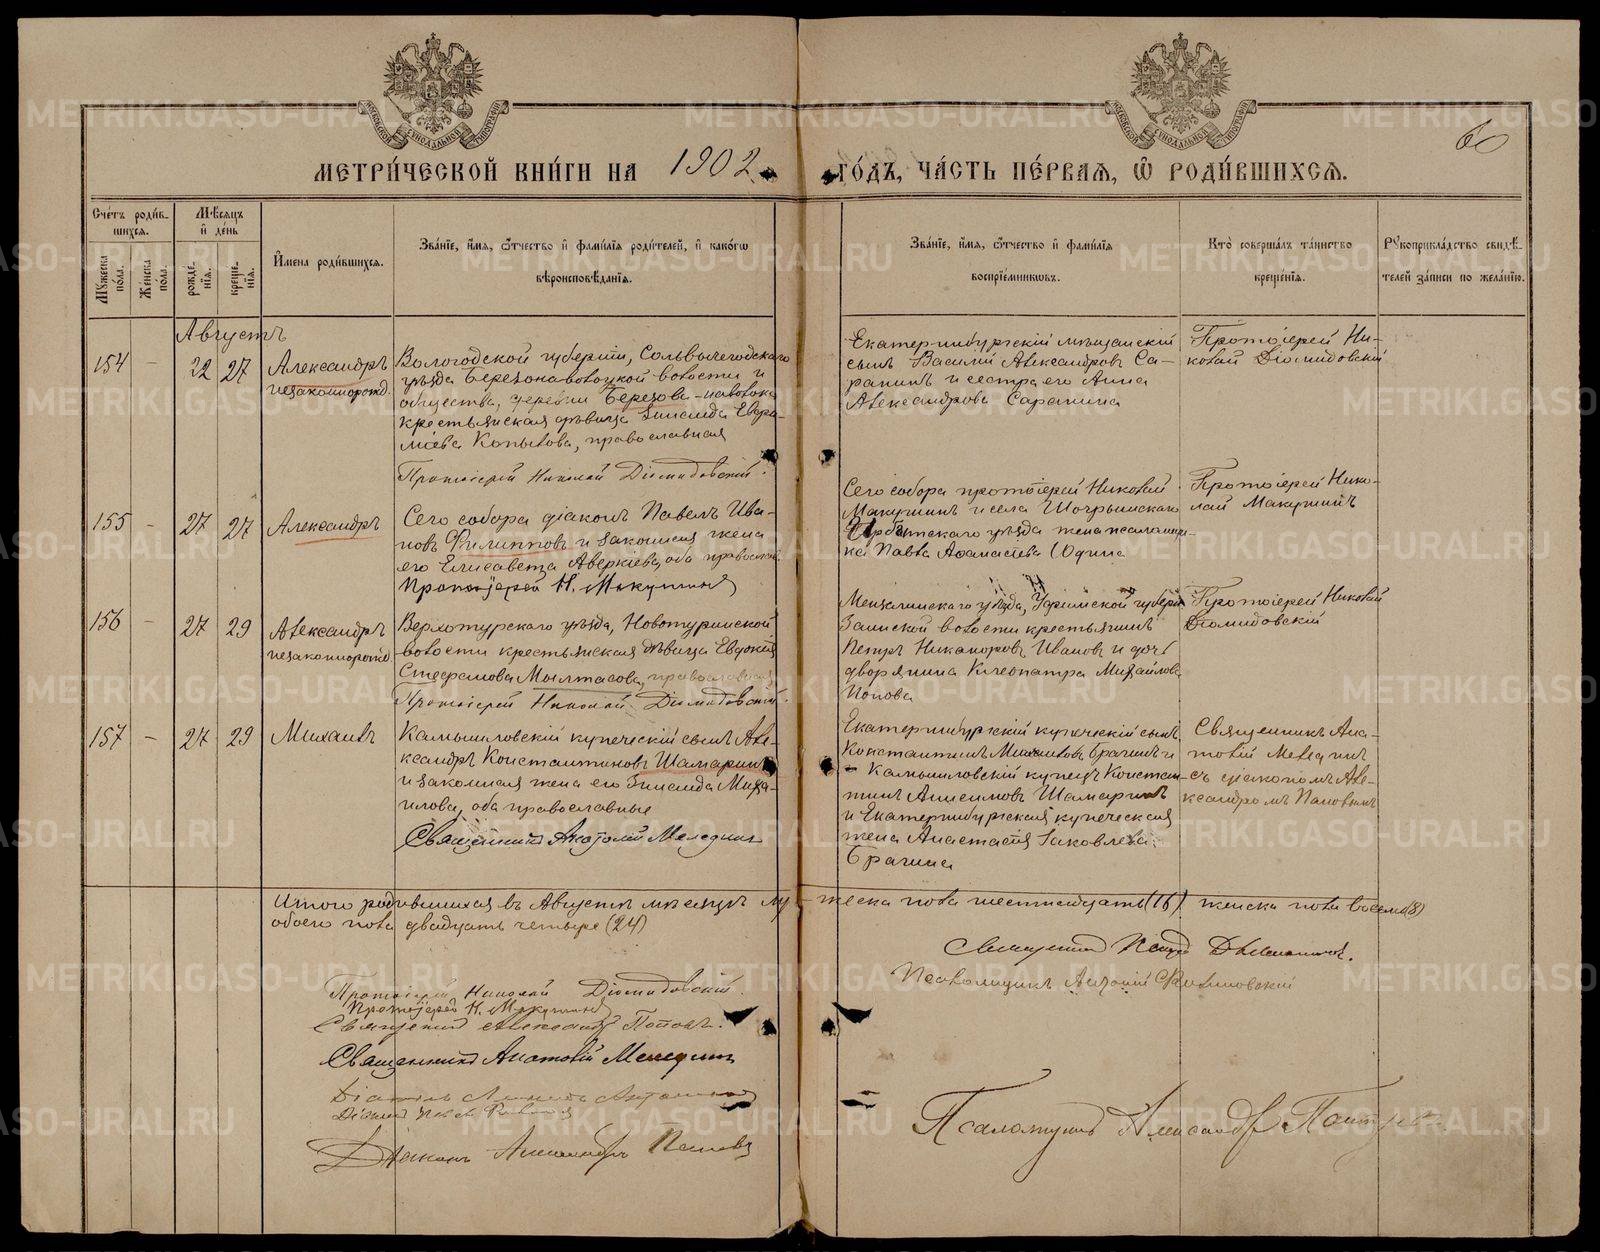 МЕТРИ́ЧЕСКОЙ КНИ́ГИ НА 1902
ГО́ДЪ, ЧА́СТЬ ПЕ́РВАЯ, Ѡ РОДИ́ВШИХСЯ.
60
Сче́тъ роди́в-
шихся.
Мꙋжеска пола.
Же́нска по́ла.
Мѣсяцъ
и де́нь
рожде-
нія.
креще-
нія.
И́мена роди́вшихся.
Зва́ніе, и́мя, ѻ́тчество и фами́лія роди́телей, и како́гѡ
вѣроисповѣ́данія.
Зва́ніе, и́мя, ѻ́тчество и фами́лія
воспріе́мниковъ.
Кто̀ соверша́лъ та́инство
креще́нія.
Рꙋкоприкла́дство свидѣ́-
телей за́писи по жела́нію.
Августъ
154 - 22 27 Александръ
незаконнорожд.
Вологодской губерніи, Сольвычегодскаго
уѣзда Березонаволоцкой волости и
общества, деревни Березова-наволока
крестьянская дѣвица Зинаида Евфи-
міева Копылова, православная
Протоіерей Николай Діомидовскій.
Екатеринбургскій мѣщанскій
сынъ Василій Александровъ Са-
рапинъ и сестра его Анна
Александрова Сарапина
Протоіерей Ни-
колай Діомидовскій
155 - 27 27 Александръ
Сего собора діаконъ Павелъ Ива-
новъ Филипповъ и законная жена
его Елисавета Аверкіева, оба православн.
Протоіерей Н. Макушинъ
Сего собора протоіерей Николай
Макушинъ и села Шогрышскаго
Ирбитскаго уѣзда жена псаломщи-
ка Павла Аѳанасіева Юдина
Протоіерей Нико-
лай Макушинъ
156 - 27 29 Александръ
незаконнорожд.
Верхотурскаго уѣзда, Новотуринской
волости крестьянская дѣвица Евдокія
Стефанова Мылтасова, православная
Протоіерей Николай Діомидовскій.
Мензелинскаго уѣзда, Уфимской губерн.
Заинской волости крестьянинъ
Петръ Никаноровъ Ивановъ и дочь
дворянина Клеопатра Михайлова
Попова
Протоіерей Николай
Діомидовскій
157 - 27 29 Михаилъ
Камышловскій купеческій сынъ Але-
ксандръ Константиновъ Шамаринъ
и законная жена его Зинаида Миха-
илова, оба православные
Священникъ Анатолій Мелединъ
Екатеринбургскій купеческій сынъ
Константинъ Михаиловъ Брагинъ и
- Камышловскій купецъ Констан-
тинъ Анисимовъ Шамаринъ
и Екатеринбургская купеческая
жена Анастасія Іаковлева
Брагина
Священникъ Ана-
толій Мелединъ
съ діакономъ Але-
ксандромъ Поповымъ
Итого родившихся въ Августѣ мѣсяцѣ му-жеска пола шестнадцать (16) женска пола восемь (8)
обоего пола двадцать четыре (24)
Протоіерей Николай Діомидовскій.
Протоіерей Н. Макушинъ
Священникъ Александръ Поповъ.
Священникъ Анатолій Мелединъ
Діаконъ
Діаконъ
Діаконъ Александръ Поповъ
Псаломщикъ
Псаломщикъ Александръ
METRIKI.GASO-URAL.RU